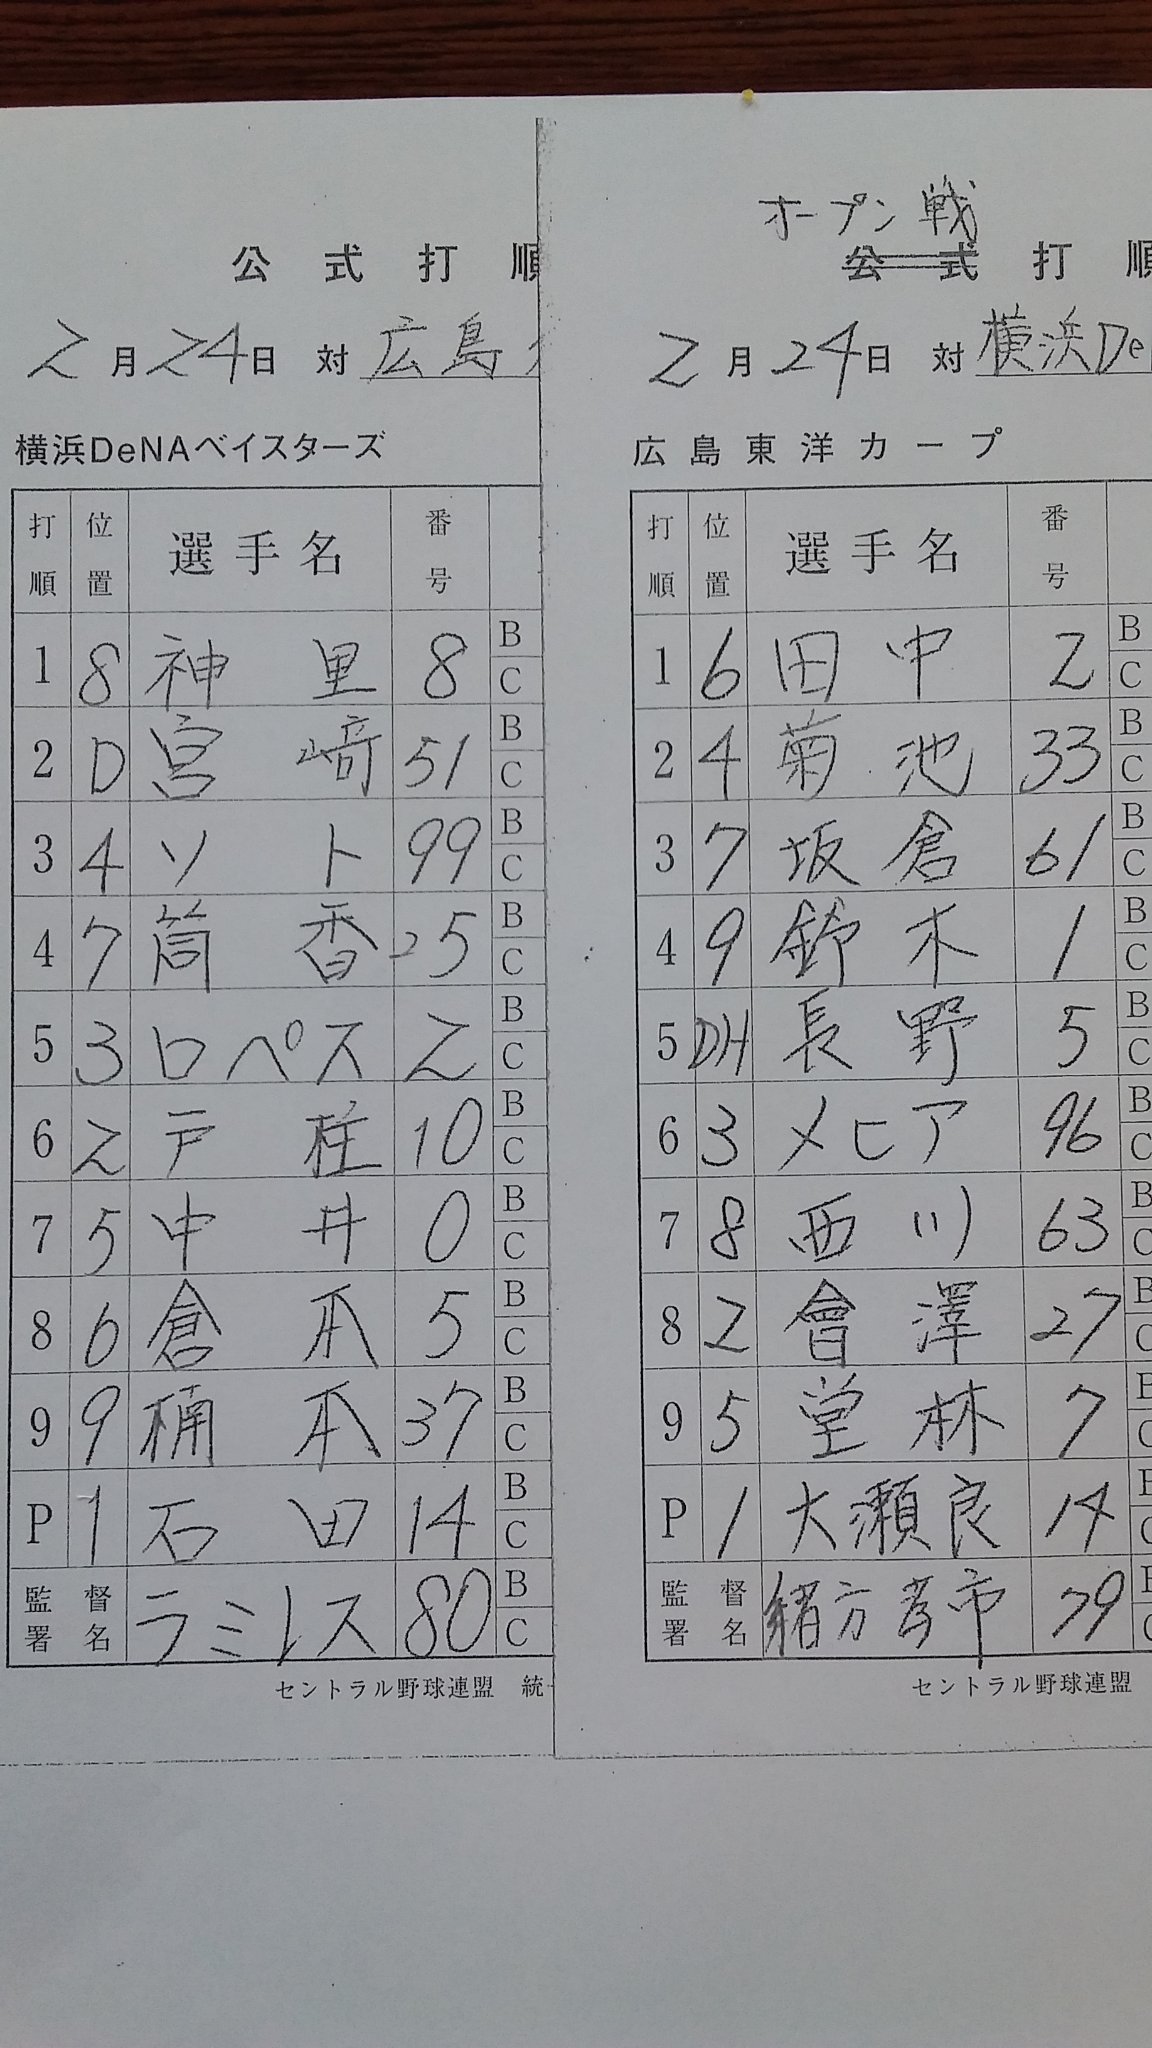 公式打順
2月24日 対 広島
横浜DeNAベイスターズ
打順 位置 選手名 番号
1 8 神里 8 B C
2 D 宮﨑 51 B C
3 4 ソト 99 B C
4 7 筒香 25 B C
5 3 ロペス 2 B C
6 2 戸柱 10 B C
7 5 中井 0 B C
8 6 倉本 5 B C
9 9 楠本 37 B C
P 1 石田 14 B C
監督署名 ラミレス 80 B C
セントラル野球連盟 統
オープン戦
公式打順
2月24日 対 横浜De
広島東洋カープ
打順 位置 選手名 番号
1 6 田中 2 B C
2 4 菊池 33 B C
3 7 坂倉 61 B C
4 9 鈴木 1 B C
5 DH 長野 5 B C
6 3 メヒア 96 B C
7 8 西川 63 B C
8 2 會澤 27 B C
9 5 堂林 7 B C
P 1 大瀬良 14 B C
監督署名 緒方孝市 79 B C
セントラル野球連盟